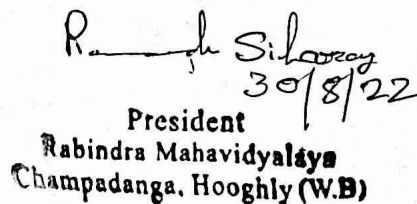 30/8/22
President
Rabindra Mahavidyalaya
Champadanga, Hooghly (W.B)